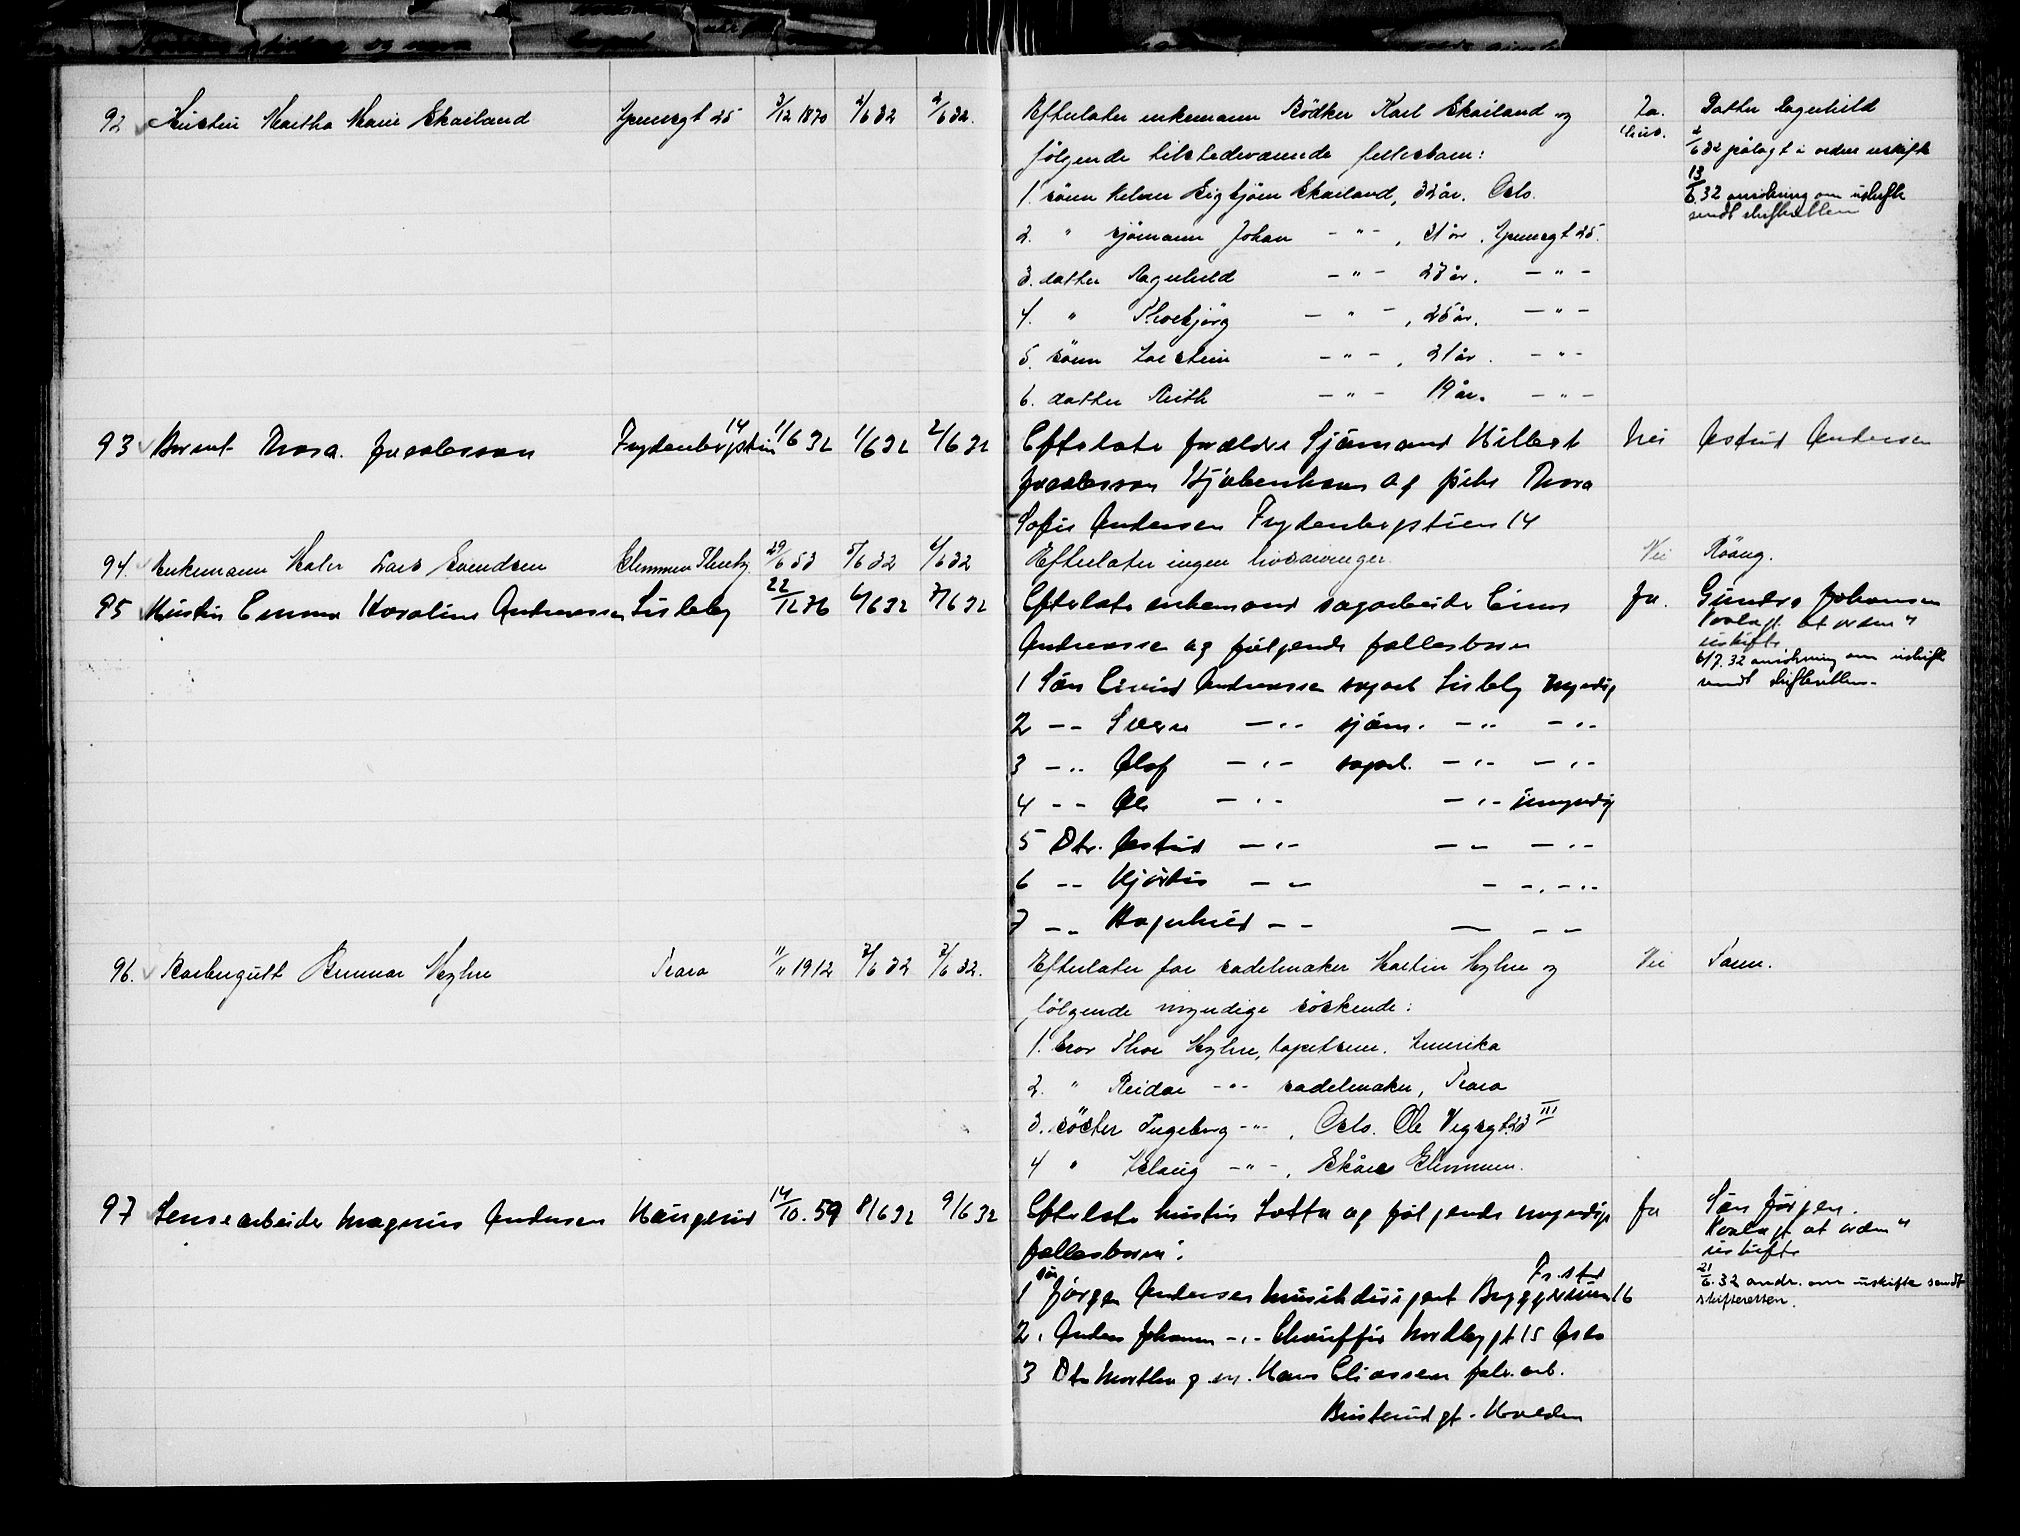 92 Hustru Martha Marie Skailand 3/12 1870 2/6 32 2/6 32.
Efterlater enkemann Bödker Karl Skailand og
følgende tilstedeværende fellesbarn:
1. sönn Helmer Sigbjörn Skailand, 32 år. Oslo.
2. " sjömann Johan - " - , 31 år.
3. datter Ragnhild - " - 27 år. - " -
4. " Thorbjörg - " - , 25 år. - " -
5. sönn Torstein - " - , 21 år. - " -
6. datter Ruth - " - 19 år. - " -
Ja.
Datter Ragnhild
2/6 32 pålagt å ordne uskifte
13/6 32 anvisning om uskifte
sendt skifteretten
93 Barnet Thora Jacobsson Frydenbergstien 14 1/6 32 1/6 32 2/6 32
Efterlater forældre Sjömand Hilbert
Jacobsson Kjöbenhavn og pike Thora
Sofie Andersen Frydenbergstien 14
Nei Astrid Andersen
94. Enkemann Maler Lars Svendsen Glemmen 29/6 53 5/6 32 6/6 32
Efterlater ingen livsarvinger.
Nei
95 Hustru Emma Karoline Andreassen Lisleby 22/12 76 6/6 32 7/6 32
Efterlater enkemand sagarbeider
Andreassen og følgende fellesbarn
1 Sön Eivind Andreassen sagarb Lisleby myndig
2 -- Sverre - " - sjöm. - " - - " -
3 - " Olaf - " - sagarb. - " - - " -
4 -- Ole - " - - " - umyndig
5 Dtr. Astrid - " - -- - " -
6 -- Hjördis -- - - " - " -
7 -- Ragnhild -- -- --
Ja. Gunda Johansen
Paalagt at ordne
uskifte
6/7.32 anvisning om uskifte
sendt skifteretten.
96. Barbergutt Gunnar Myhre Trara 11/11 1912 7/6 32 7/6 32.
Efterlater far sadelmaker Martin Myhre og
følgende myndige söskende:
1. bror Thor Myhre, tapetserer. Amerika
2. " Reidar - " - sadelmaker, Trara
3. söster Ingeborg - " - , Oslo. Ole Vigsgt. 23 III
4 " Solveig - " - , Skåre Glemmen.
Nei Faren.
97 Lensearbeider Magnus Andersen Haugerud 14/10.59 8/6 32 9/6 32
Efterlater hustru Lotta og følgende myndige
fellesbarn:
1 sön Jörgen Andersen musikdirigent Bryggeriveien 16 Fr.std
2. Anders Johannes - " - Chauffür Nordbygt 15 Oslo
3 Dtr Marthe g. m. Hans Eliassen fabr. arb.
Busterudgt. Halden
Ja Sön Jörgen.
Paalagt at ordne
uskifte
21/6.32 andr. om uskifte sendt
skifteretten.